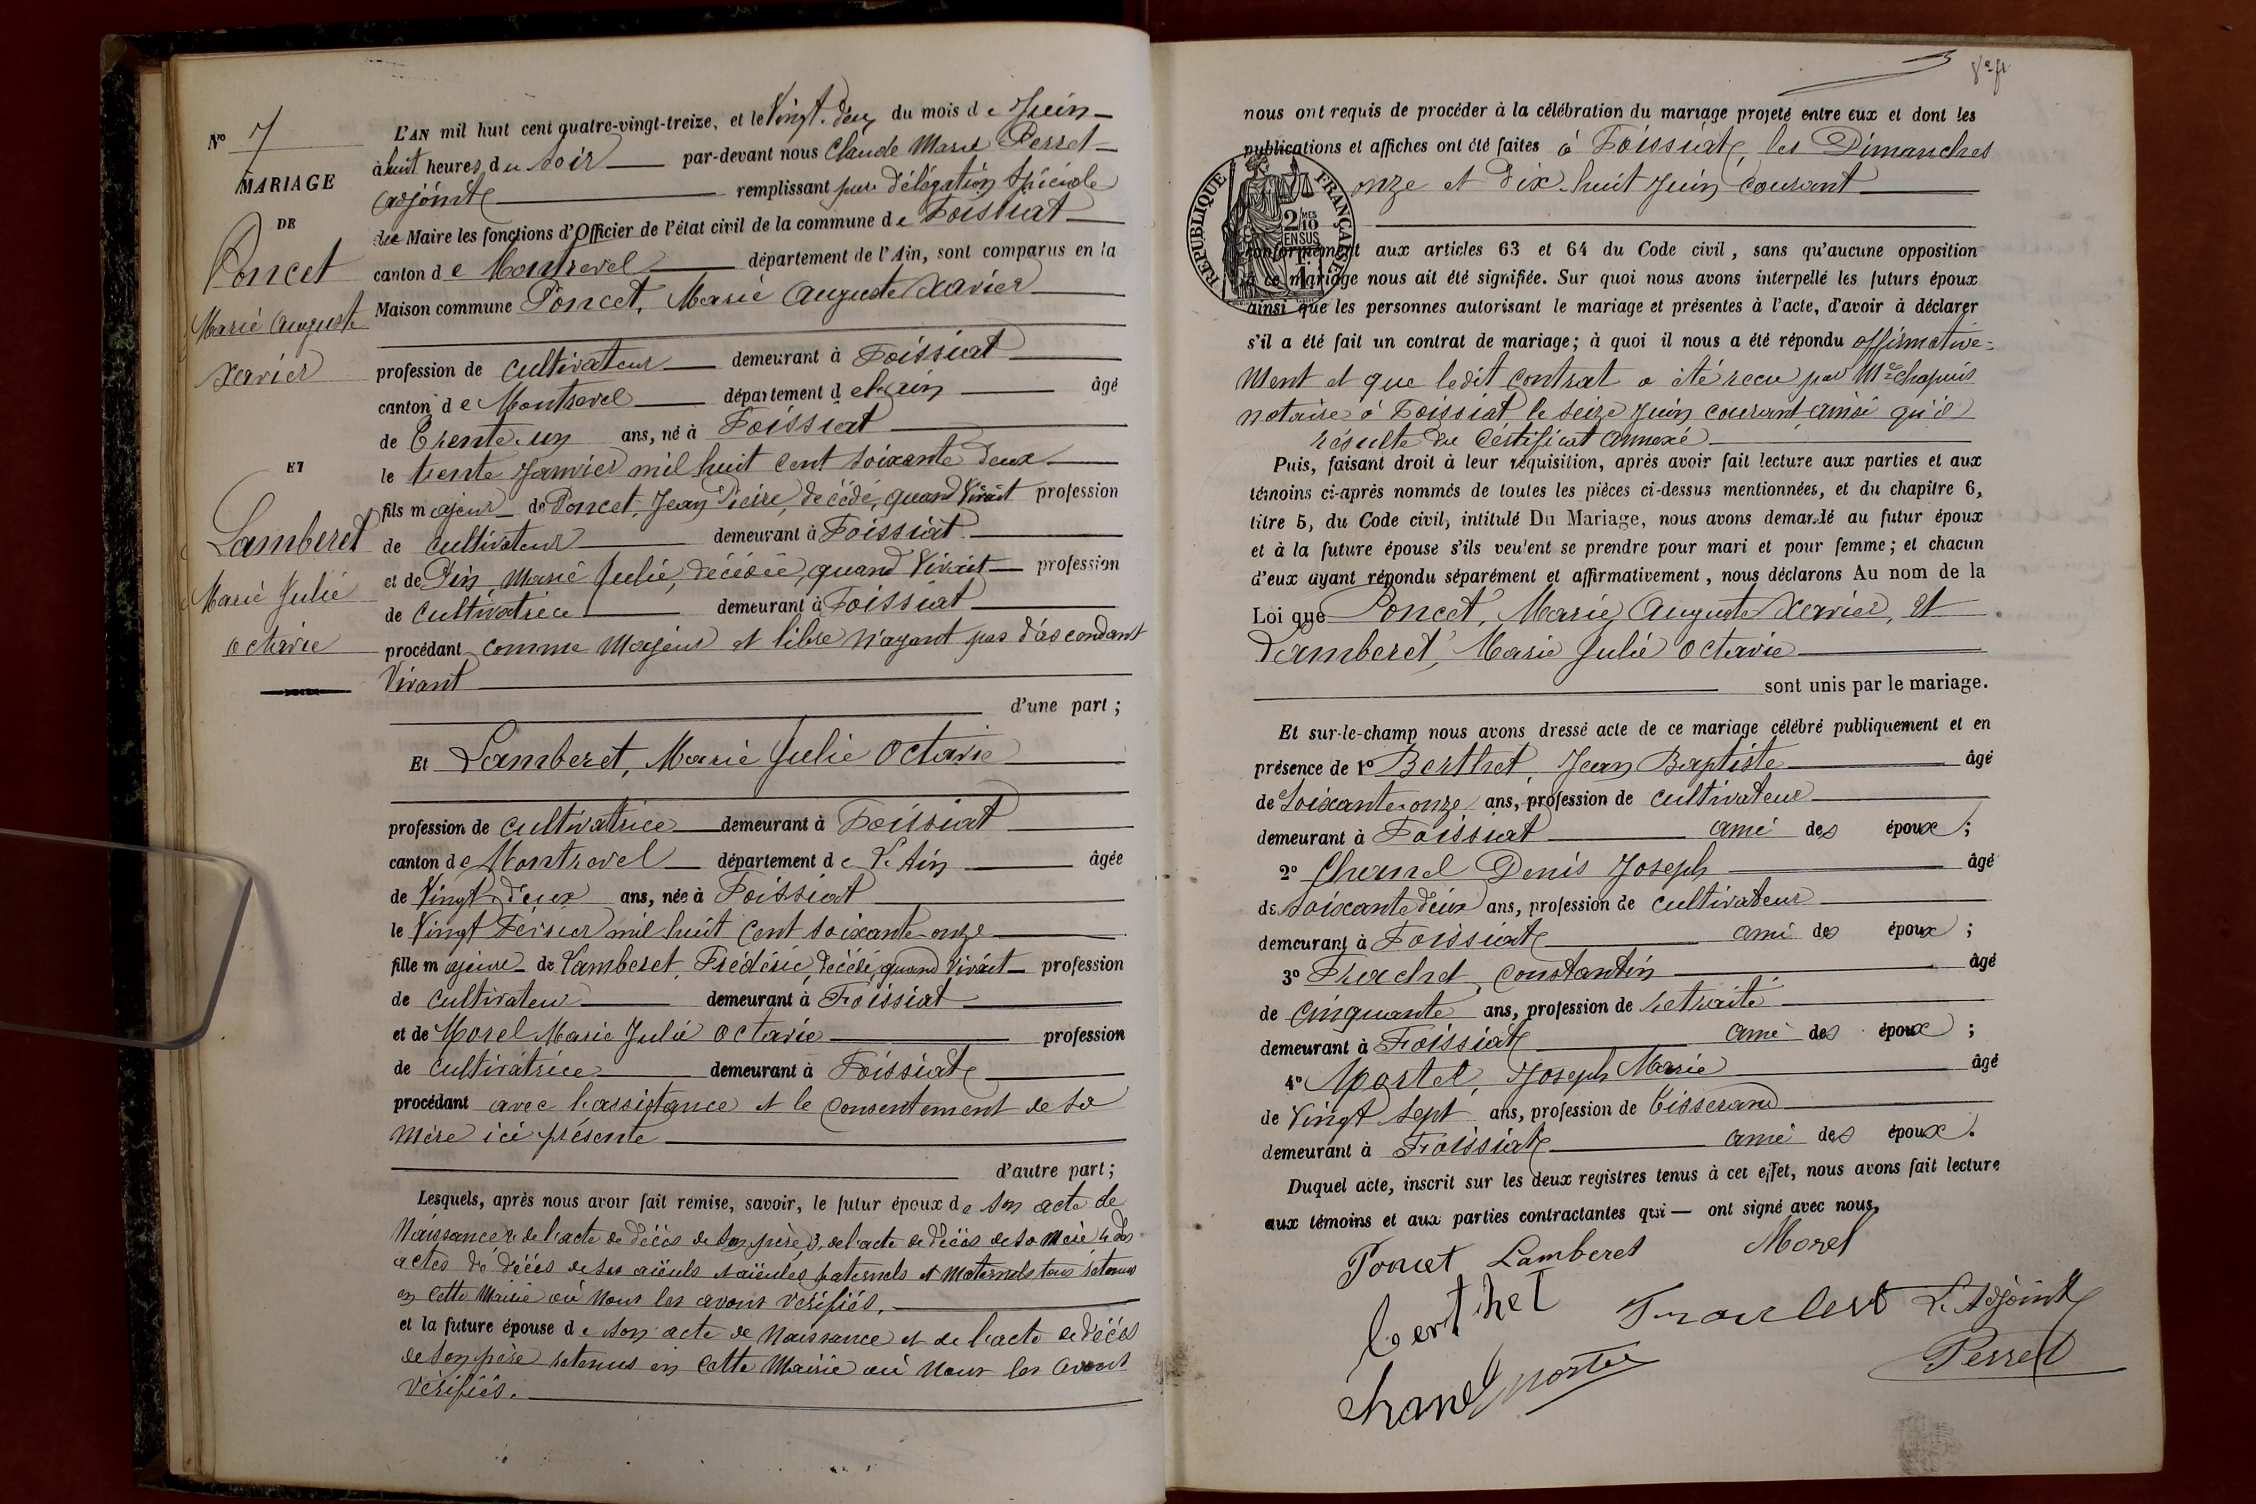 N° 7
MARIAGE
DE
Poncet
Marie Auguste
Xavier
ET
Lamberet
Marie Julie
Octavie
L'AN mil huit cent quatre-vingt-treize, et le Vingt-deux du mois de Juin
à huit heures du soir par-devant nous Claude Marie Perret
adjoint remplissant par délégation spéciale
du Maire les fonctions d'Officier de l'état civil de la commune de Foissiat
canton de Montrevel département de l'Ain, sont comparus en la
Maison commune Poncet, Marie Auguste Xavier
profession de cultivateur demeurant à Foissiat
canton de Montrevel département de l'ain âgé
de Trente-un ans, né à Foissiat
le trente Janvier mil huit cent soixante deux
fils majeur de Poncet, Jean Pierre, décédé, quand vivait profession
de cultivateur demeurant à Foissiat
et de Pin, Marie Julie, décédée, quand vivait profession
de cultivatrice demeurant à Foissiat
procédant comme majeur et libre n'ayant pas d'ascendant
vivant
d'une part ;
Et Lamberet, Marie Julie Octavie
profession de cultivatrice demeurant à Foissiat
canton de Montrevel département de l'Ain âgée
de Vingt-deux ans, née à Foissiat
le Vingt Février mil huit cent soixante-onze
fille majeure de Lamberet, Frédéric, décédé, quand vivait profession
de cultivateur demeurant à Foissiat
et de Morel Marie Julie Octavie profession
de cultivatrice demeurant à Foissiat
procédant avec l'assistance et le consentement de sa
mère ici présente
d'autre part ;
Lesquels, après nous avoir fait remise, savoir, le futur époux de son acte de
Naissance 2. de l'acte de décès de son père, 3. de l'acte de décès de sa mère 4. des
actes de décès de ses aïeuls et aïeules paternels et maternels tous retenus
en cette Mairie où nous les avons vérifiés.
et la future épouse de son acte de Naissance et de l'acte de décès
de son père retenus en cette Mairie où nous les avons
vérifiés.
nous ont requis de procéder à la célébration du mariage projeté entre eux et dont les
publications et affiches ont été faites à Foissiat, les Dimanches
onze et dix-huit Juin courant
RÉPUBLIQUE FRANÇAISE
2/10 EN SUS
conformément aux articles 63 et 64 du Code civil, sans qu'aucune opposition
à ce mariage nous ait été signifiée. Sur quoi nous avons interpellé les futurs époux
ainsi que les personnes autorisant le mariage et présentes à l'acte, d'avoir à déclarer
s'il a été fait un contrat de mariage ; à quoi il nous a été répondu affirmative=
ment et que ledit contrat a été reçu par Me Chapuis
notaire à Foissiat le seize Juin courant ainsi qu'il
résulte du Certificat annexé
Puis, faisant droit à leur réquisition, après avoir fait lecture aux parties et aux
témoins ci-après nommés de toutes les pièces ci-dessus mentionnées, et du chapitre 6,
titre 5, du Code civil, intitulé Du Mariage, nous avons demandé au futur époux
et à la future épouse s'ils veulent se prendre pour mari et pour femme ; et chacun
d'eux ayant répondu séparément et affirmativement, nous déclarons Au nom de la
Loi que Poncet, Marie Auguste Xavier, et
Lamberet, Marie Julie Octavie
sont unis par le mariage.
Et sur-le-champ nous avons dressé acte de ce mariage célébré publiquement et en
présence de 1° Berthet, Jean Baptiste âgé
de Soixante-onze ans, profession de cultivateur
demeurant à Foissiat ami des époux ;
2° Chanel Denis Joseph âgé
de soixante deux ans, profession de cultivateur
demeurant à Foissiat ami des époux ;
3° Frachet, Constantin âgé
de cinquante ans, profession de retraité
demeurant à Foissiat ami des époux ;
4° Mortel, Joseph Marie âgé
de Vingt sept ans, profession de tisserand
demeurant à Foissiat ami des époux.
Duquel acte, inscrit sur les deux registres tenus à cet effet, nous avons fait lecture
aux témoins et aux parties contractantes qui ont signé avec nous.
Poncet Lamberet Morel
berthet L'Adjoint
chanel Perret